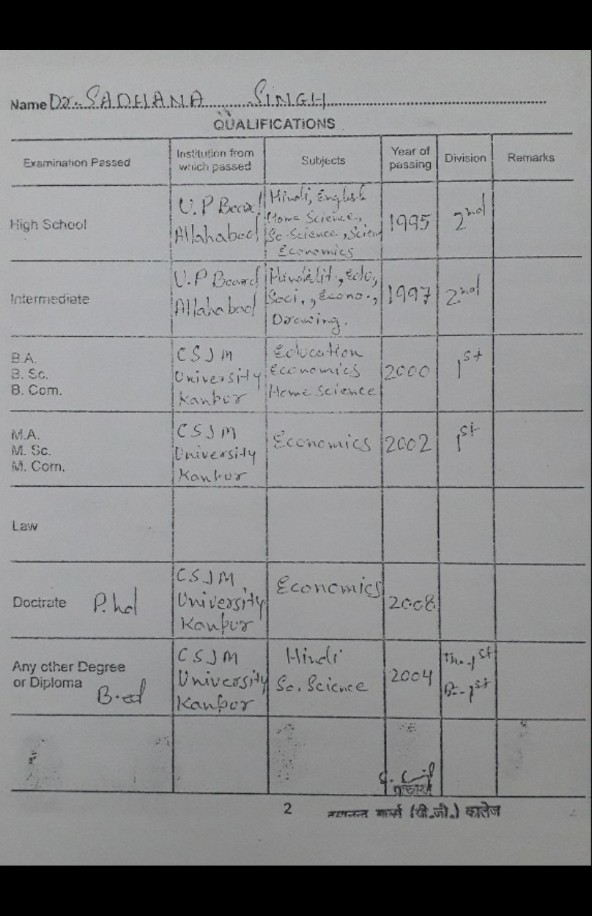 Name Dr. SADHANA SINGH
QUALIFICATIONS
Examination Passed
Institution from which passed
Subjects
Year of passing
Division
Remarks
High School
U.P Board
Allahabad
Hindi, English
Home Science,
So-Science, Scien
Economics
1995
2nd
Intermediate
U.P Board
Allahabad
Hindi lit., Edu,
Soci., Econo.,
Drawing.
1997
2nd
B.A.
B. Sc.
B. Com.
CSJM
University
Kanpur
Education
Economics
Home Science
2000
1st
M.A.
M. Sc.
M. Com.
CSJM
University
Kanpur
Economics
2002
1st
Law
Doctrate P.hd
CSJM
University
Kanpur
Economics
2008
Any other Degree
or Diploma B.ed
CSJM
University
Kanpur
Hindi
So. Science
2004
Th-1st
Pr-1st
प्राचार्य
2
(पी.जी.) कालेज